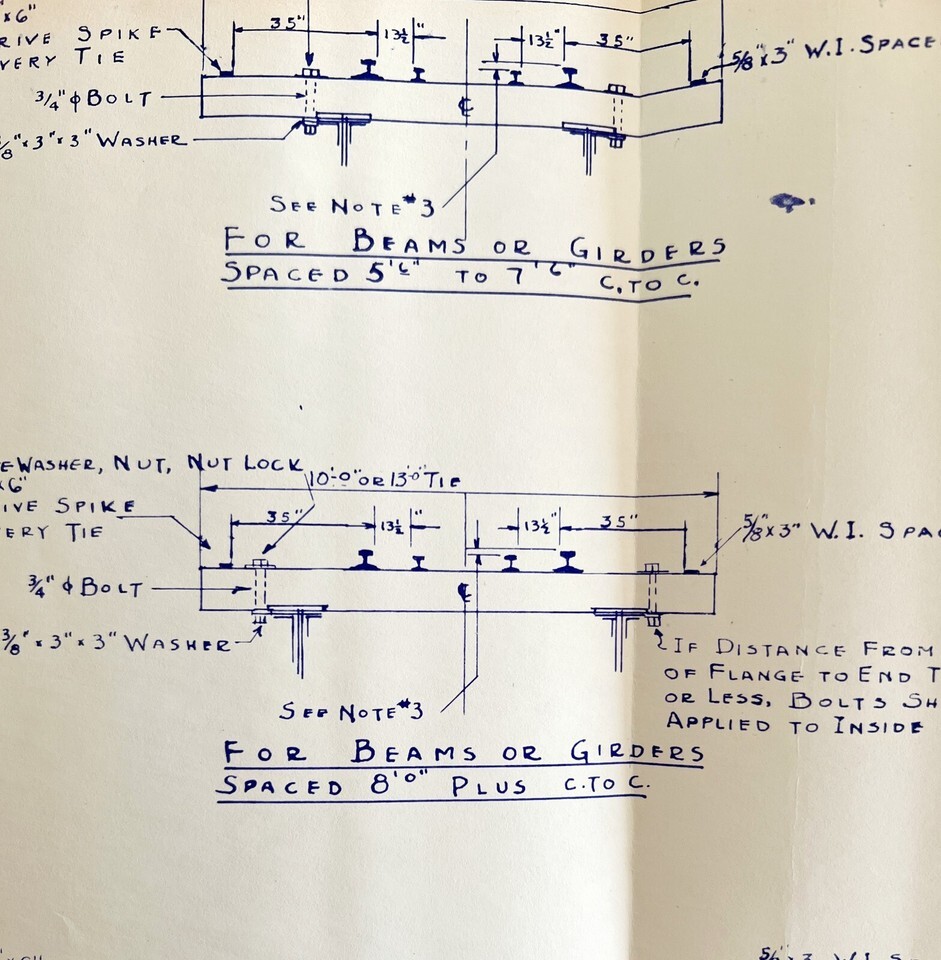 x6"
RIVE SPIKE
VERY TIE
35"
13½"
13½"
35"
5/8"x3" W.I. SPACE
3/4" ϕ BOLT
/8"x3"x3" WASHER
℄
SEE NOTE #3
FOR BEAMS OR GIRDERS
SPACED 5'6" TO 7'6" C. TO C.
E WASHER, NUT, NUT LOCK
x6"
IVE SPIKE
ERY TIE
10'-0" OR 13'-0" TIE
35"
13½"
13½"
35"
5/8"x3" W.I. SPA
3/4" ϕ BOLT
3/8"x3"x3" WASHER
℄
IF DISTANCE FROM
OF FLANGE TO END T
OR LESS, BOLTS SH
APPLIED TO INSIDE
SEE NOTE #3
FOR BEAMS OR GIRDERS
SPACED 8'0" PLUS C. TO C.